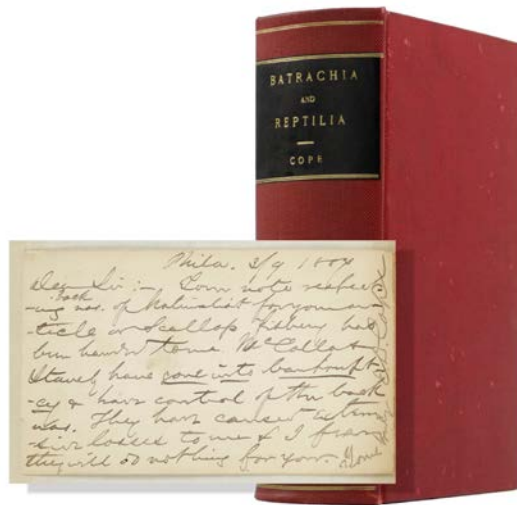 BATRACHIA
AND
REPTILIA
COPE
Phila. 3/9 1884
Dear Sir :- Your note respect
back
-ing nos. of Naturalist for your ar
-ticle on Scallop fishery has
been handed to me. McCalla &
Stavely have gone into bankrupt
-cy & have control of the back
nos. They have caused exten
-sive losses to me & I fear
they will do nothing for you.
Yours truly E D Cope